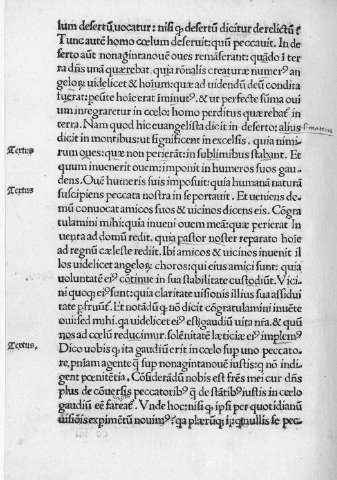 lum desertũ uocatur: nisi q̨ desertũ dicitur derelictũ ẽ
Tunc autẽ homo cœlum deseruit: quũ peccauit. In de
serto aũt nonagintanouẽ oues remãserant: quãdo ĩ ter
ra dñs unã quærebat. quia rõnalis creaturæ numerꝰ an
gelorꝝ uidelicet & hoĩum: quæ ad uidendũ deũ condita
fuerat: peũte hoĩe erat ĩminutꝰ. & ut perfecte sũma oui
um integraretur in cœlo: homo perditus quærebat̃ in
terra. Nam quod hic euangelista dicit in deserto: alius
dicit in montibus: ut significent̃ in excelsis. quia nimi-
Textus
rum oues: quæ non perierãt: in sublimibus stabant. Et
quum inuenerit ouem: imponit in humeros suos gau
dens. Ouẽ humeris suis imposuit: quia humanã naturã
Textus
suscipiens peccata nostra in se portauit. Et ueniens do-
mũ conuocat amicos suos & uicinos dicens eis. Cõgra
tulamini mihi: quia inueni ouem meã: quæ perierat In
uenta ad domũ redit. quia pastor noster reparato hoĩe
ad regnũ cæleste rediit. Ibi amicos & uicinos inuenit il
los uidelicet angelorꝝ choros: qui eius amici sunt: quia
uoluntatẽ eiꝰ cõtinue in sua stabilitate custodiũt. Vici-
ni quoq̨ eiꝰ sunt: quia claritate uisionis illius sua assidui
tate ꝑfruunt̃. Et notãdũ q̨ nõ dicit cõgratulamini inuẽte
oui: sed mihi. qa uidelicet eiꝰ est gaudiũ uita nr̃a. & quũ
nos ad cœlũ reducimur. solẽnitatẽ lætitiæ eiꝰ implemꝰ
Textus.
Dico uobis q̨ ita gaudiũ erit in cœlo sup uno peccato-
re, pñiam agente q̨ sup nonagintanouẽ iustis: q nõ indi-
gent pœnitẽtia. Cõsiderãdũ nobis est fr̃es mei cur dñs
plus de cõuersis peccatoribꝰ q̨ de stãtibꝰ iustis in cœlo
gaudiũ eẽ fateat̃. Vnde hoc: nisi q̨ ipsi per quotidianũ
uisiõis expimẽtũ nouimꝰ: